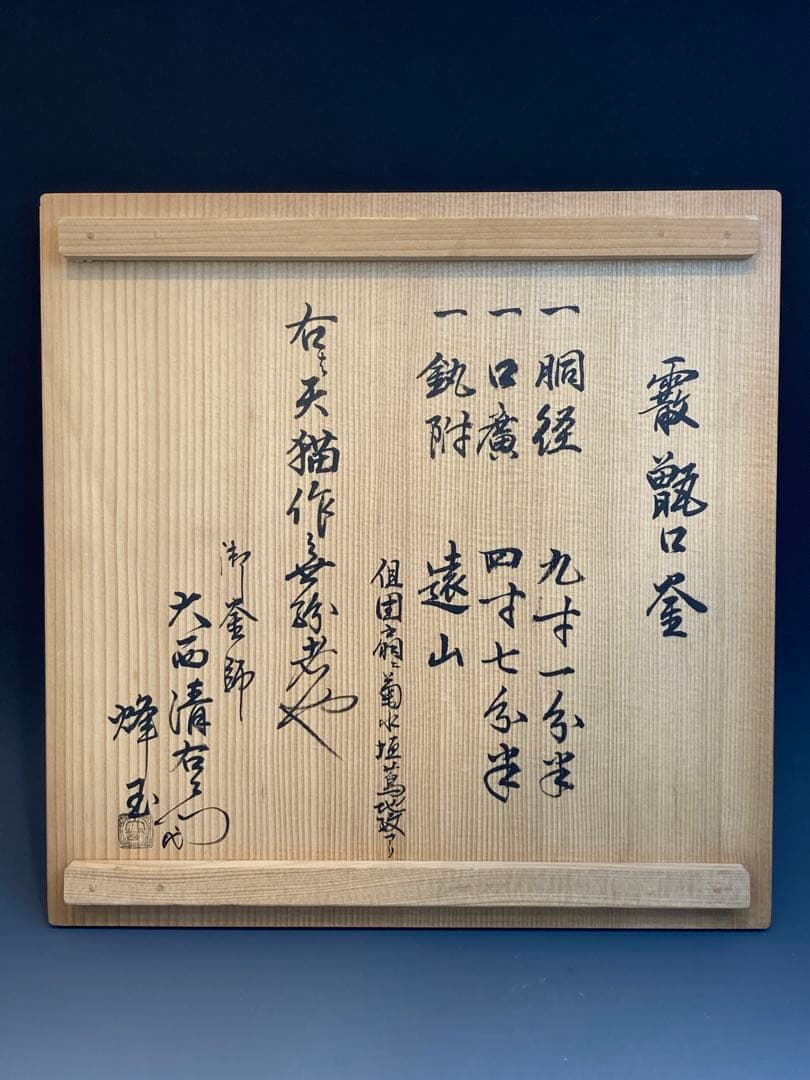 霰 甑口釜
一 胴径 九寸一分半
一 口廣 四寸七分半
一 釻附 遠山
但団扇ニ菊水垣蔦地紋アリ
右ハ天猫作ニ無紛者也
御釜師
大西清右衛門代
烽玉